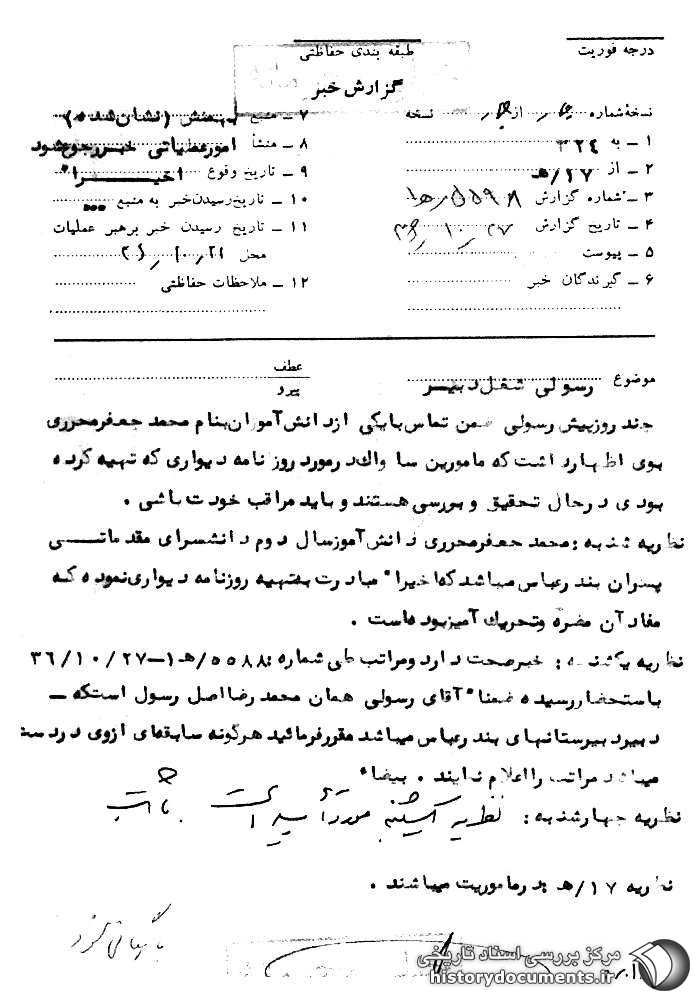 درجه فوریت
طبقه بندی حفاظتی
گزارش خبر
نسخهٔ شماره از نسخه
۱ ـ به ۳۲۴
۲ ـ از ۱۷/ﻫ
۳ ـ شماره گزارش ۵۵۹۸/ﻫ۱
۴ ـ تاریخ گزارش ۳۶/۱۰/۲۷
۵ ـ پیوست
۶ ـ گیرندگان خبر
۷ ـ منبع (نشان شده)
۸ ـ منشأ امورعملیاتی خبررجوع شود
۹ ـ تاریخ وقوع اخیرا"
۱۰ ـ تاریخ رسیدن خبر به منبع
۱۱ ـ تاریخ رسیدن خبر برهبر عملیات
محل
۱۲ ـ ملاحظات حفاظتی
موضوع رسولی شغل دبیر
عطف
پیرو
چند روز پیش رسولی ضمن تماس با یکی از دانش آموزان بنام محمد جعفر محرری
بوی اظهار داشت که مامورین ساواک در مورد روزنامه دیواری که تهیه کرده
بودی در حال تحقیق و بررسی هستند و باید مراقب خودت باشی .
نظریه شنبه : محمد جعفر محرری دانش آموز سال دوم دانشسرای مقدماتی
پسران بندرعباس میباشد که اخیرا" مبادرت به تهیه روزنامه دیواری نموده که
مفاد آن مضره و تحریک آمیز بوده است .
نظریه یکشنبه : خبر صحت دارد و مراتب طی شماره : ۵۵۸۸/ﻫ۱-۳۶/۱۰/۲۷
باستحضار رسیده ضمنا" آقای رسولی همان محمد رضا اصل رسول است که ـ
دبیر دبیرستانهای بندرعباس میباشد مقرر فرمائید هرگونه سابقه ای از وی در دست
میباشد مراتب را اعلام نمایند . بیضاء
نظریه چهارشنبه : نظریه یکشنبه مورد تأیید است
نظریه ۱۷/ﻫ : در ماموریت میباشند .
مرکز بررسی اسناد تاریخی
historydocuments.ir